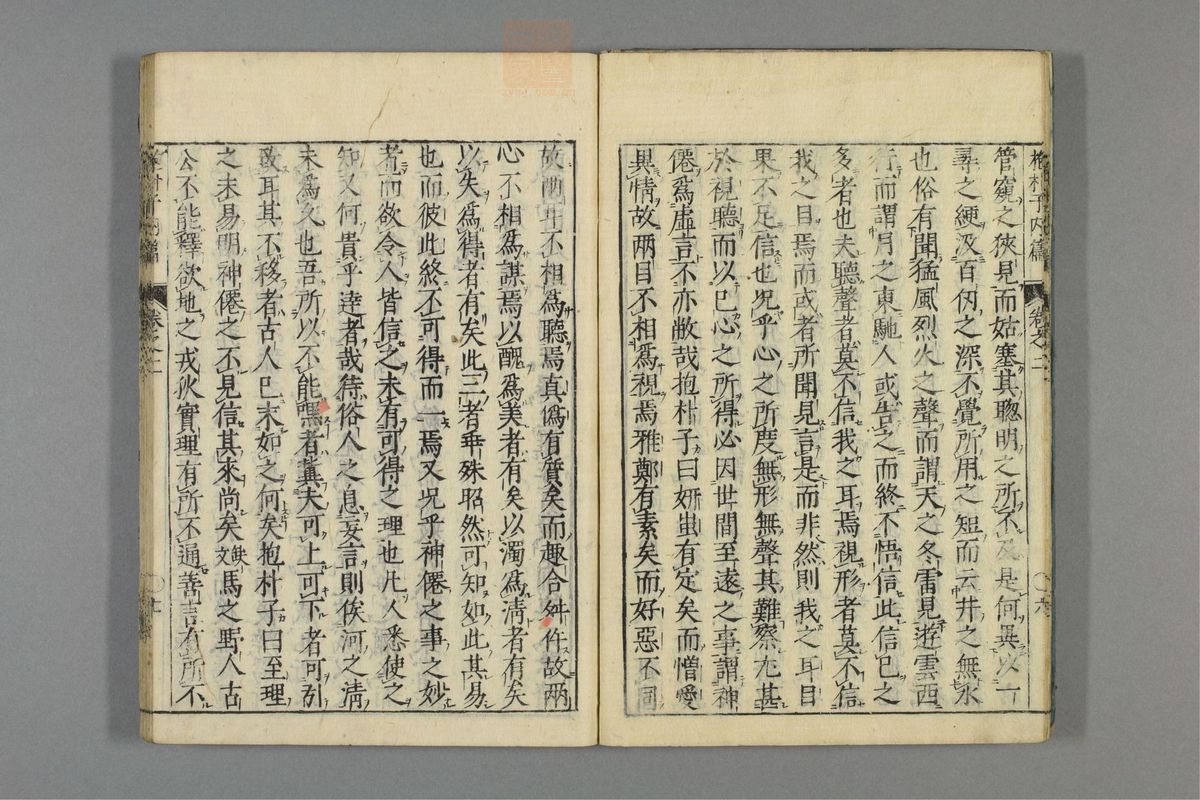 抱朴子内篇 卷之二 十六
管窺之狹見而姑塞其聰明之所不及是何異以一
尋之綆汲百仞之深不覺所用之短而云井之無水
也俗有聞猛風烈火之聲而謂天之冬雷見遊雲西
行而謂月之東馳人或告之而終不悟信此信己之
多者也夫聽聲者莫不信我之耳焉視形者莫不信
我之目焉而或者所聞見言是而非然則我之耳目
果不足信也况乎心之所度無形無聲其難察尤甚
於視聽而以己心之所得必因世間至遠之事謂神
僊爲虛言不亦蔽哉抱朴子曰妍蚩有定矣而憎愛
異情故兩目不相爲視焉雅鄭有素矣而好惡不同
故兩耳不相爲聽焉真僞有質矣而趣舍舛忤故兩
心不相爲謀焉以醜爲美者有矣以濁爲清者有矣
以失爲得者有矣此三者乖殊昭然可知如此其易
也而彼此終不可得而一焉又况乎神僊之事之妙
者而欲令人皆信之未有可得之理也凡人悉使之
知又何貴乎達者哉待俗人之息妄言則俟河之清
未爲久也吾所以不能默者冀夫可上可下者可引
致耳其不移者古人已末如之何矣抱朴子曰至理
之未易明神僊之不見信其來尚矣 缺文 馬之野人古
公不能釋欲地之戎狄實理有所不通善言有所不
抱朴子内篇 卷之二